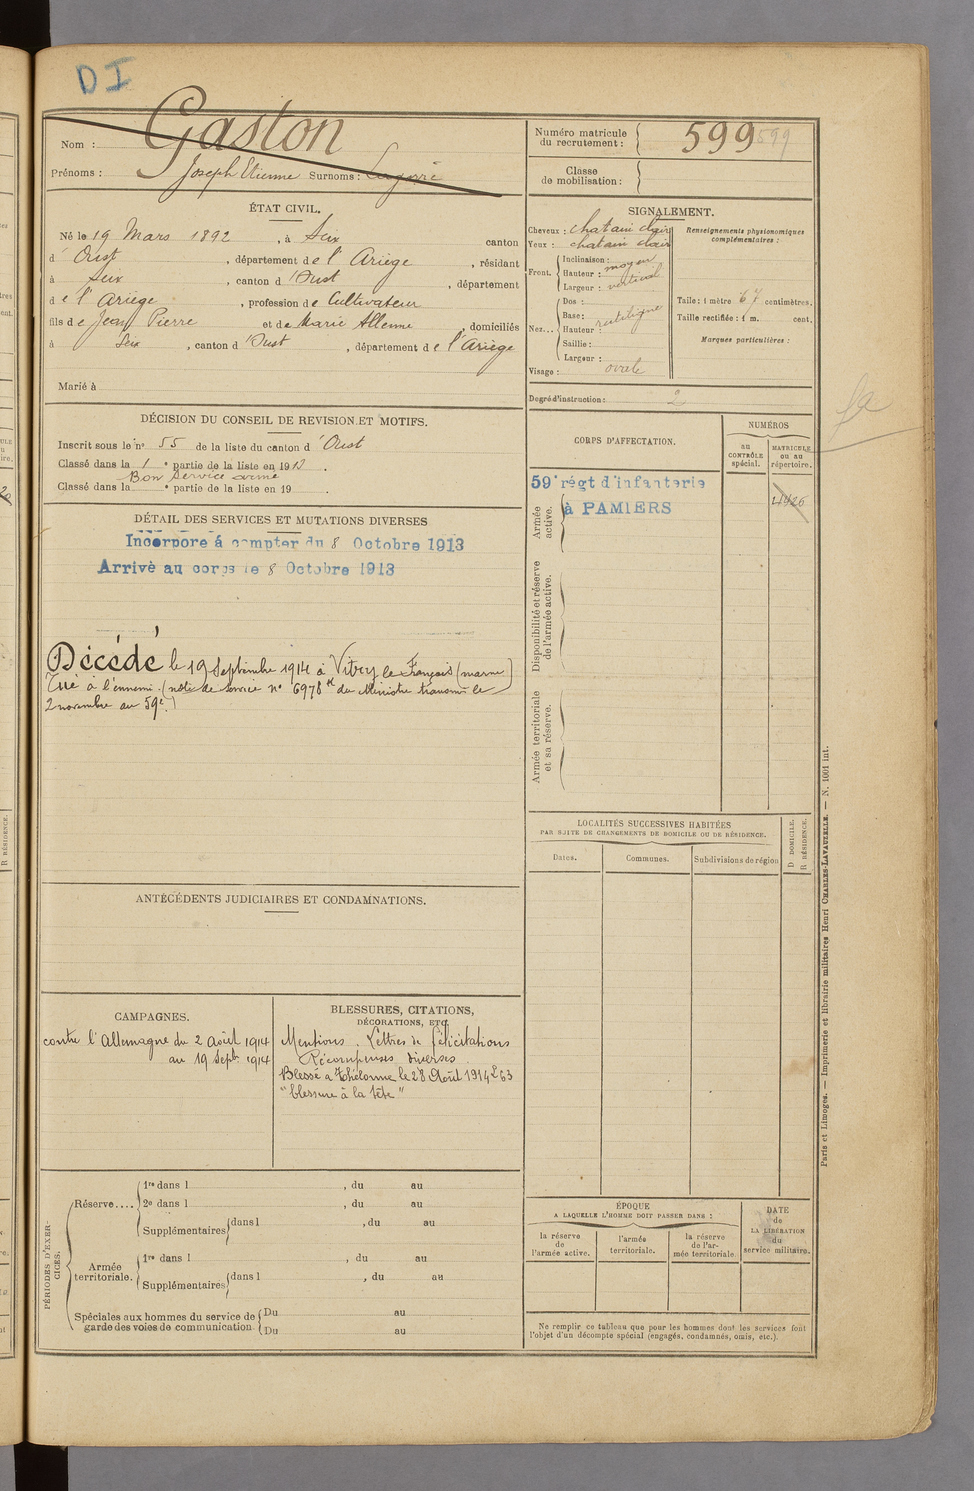 DI
Nom : Gaston
Prénoms : Joseph Etienne Surnoms :
Numéro matricule du recrutement : 599 599
Classe de mobilisation :
ÉTAT CIVIL.
Né le 19 Mars 1892, à Seix canton
d' Oust, département de l'Ariège, résidant
à Seix, canton d'Oust, département
de l'Ariège, profession de Cultivateur
fils de Jean Pierre et de Marie, domiciliés
à Seix, canton d'Oust, département de l'Ariège
Marié à
DÉCISION DU CONSEIL DE REVISION ET MOTIFS.
Inscrit sous le n° 55 de la liste du canton d'Oust
Classé dans la 1e partie de la liste en 1913.
Bon Service armé
Classé dans la e partie de la liste en 19 .
DÉTAIL DES SERVICES ET MUTATIONS DIVERSES
Incorporé à compter du 8 Octobre 1913
Arrivé au corps le 8 Octobre 1913
Décédé le 19 Septembre 1914 à Vitry le Français (marne)
Tué à l'ennemi. (note de service n° 6978 du Ministre transmise le
2 novembre au 59e.)
ANTÉCÉDENTS JUDICIAIRES ET CONDAMNATIONS.
CAMPAGNES.
contre l'Allemagne du 2 Août 1914
au 19 Sept. 1914
BLESSURES, CITATIONS,
DÉCORATIONS, ETC.
Mentions. Lettres de félicitations
Récompenses diverses.
Blessé a Thélonne le 28 Août 1914
"blessure à la tête"
PÉRIODES D'EXERCICES.
Réserve....
1re dans l , du au
2e dans l , du au
Supplémentaires dans l , du au
Armée territoriale.
1re dans l , du au
Supplémentaires dans l , du au
Spéciales aux hommes du service de garde des voies de communication
Du au
Du au
SIGNALEMENT.
Cheveux : chatain clair
Yeux : chatain clair
Front.
Inclinaison :
Hauteur : moyen
Largeur : vertical
Nez...
Dos :
Base :
Hauteur : rectiligne
Saillie :
Largeur :
Visage : ovale
Renseignements physionomiques complémentaires :
Taille : 1 mètre 67 centimètres.
Taille rectifiée : 1 m. cent.
Marques particulières :
Degré d'instruction : 2
CORPS D'AFFECTATION.
NUMÉROS
au CONTRÔLE spécial.
MATRICULE ou au répertoire.
Armée active.
59e régt d'infanterie
à PAMIERS
4926
Disponibilité et réserve de l'armée active.
Armée territoriale et sa réserve.
LOCALITÉS SUCCESSIVES HABITÉES
PAR SUITE DE CHANGEMENTS DE DOMICILE OU DE RÉSIDENCE.
D DOMICILE.
R RÉSIDENCE.
Dates.
Communes.
Subdivisions de région
ÉPOQUE
A LAQUELLE L'HOMME DOIT PASSER DANS :
la réserve de l'armée active.
l'armée territoriale.
la réserve de l'armée territoriale.
DATE de LA LIBÉRATION du service militaire.
Ne remplir ce tableau que pour les hommes dont les services font
l'objet d'un décompte spécial (engagés, condamnés, omis, etc.).
Paris et Limoges. — Imprimerie et librairie militaires Henri CHARLES-LAVAUZELLE. — N. 1001 int.
R RÉSIDENCE.